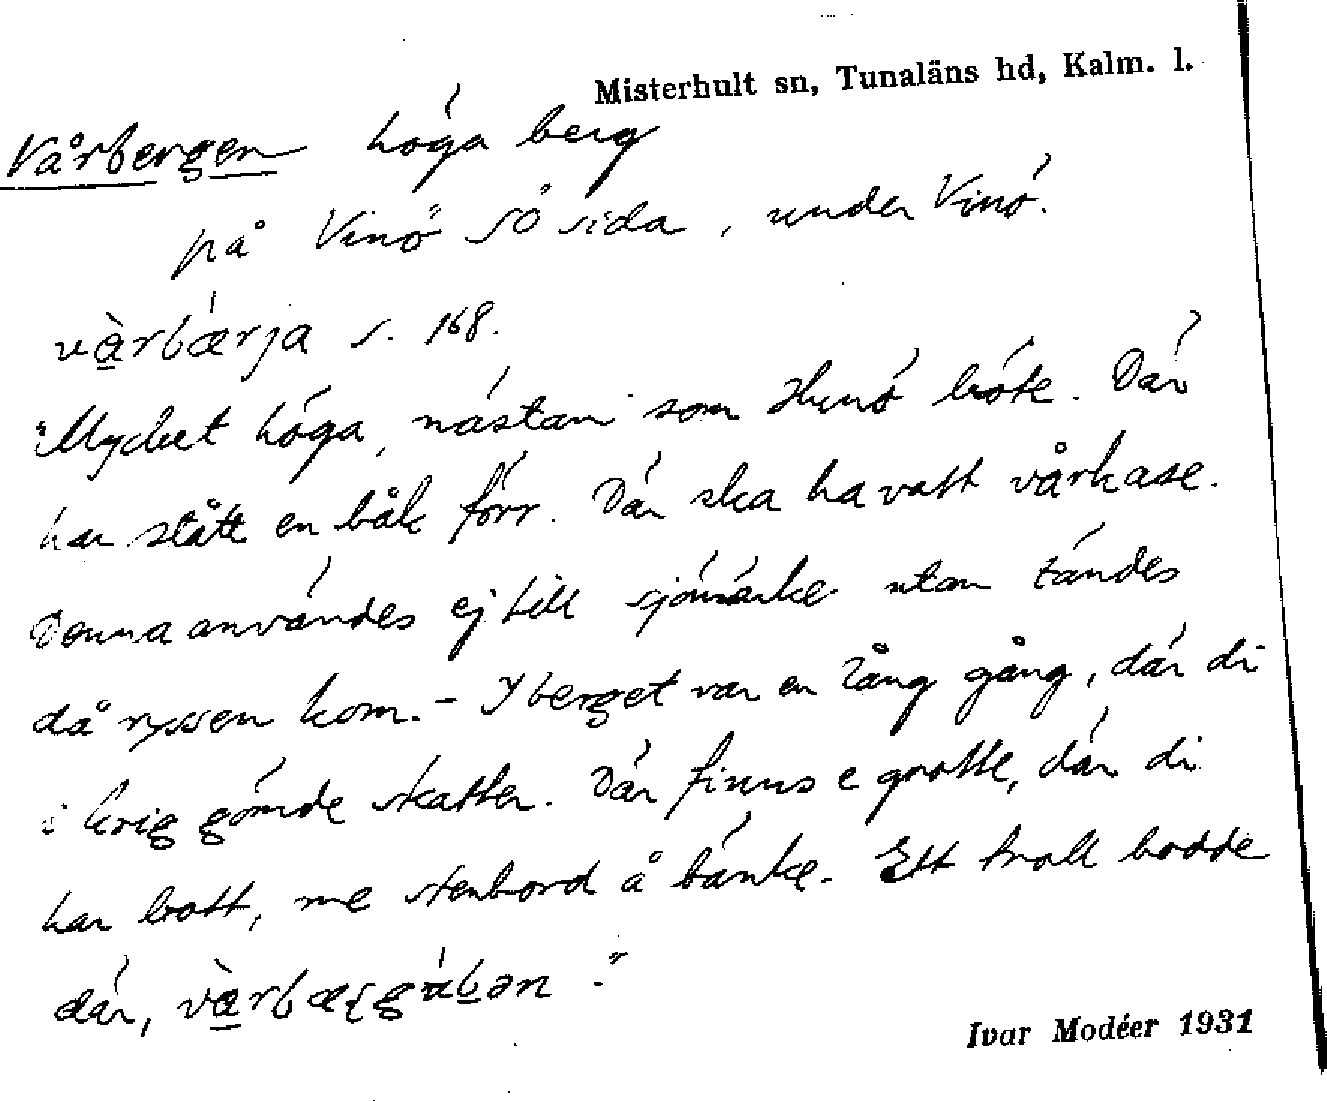 Misterhult sn, Tunaläns hd, Kalm. l.
Vårbergen höga berg
på Vinö SÖ sida, under Vinö.
vàrbǽrja s. 168.
"Mycket höga, nästan som Hunö böte. Där
har stått en båk förr. Där ska ha vatt vårkase.
Denna användes ej till sjömärke utan tändes
då ryssen kom. - I berget var en lång gång, där di
i krig gömde skatter. Där finns e grotte, där di
har bott, me stenbord å bänke. Ett troll bodde
där,
Ivar Modéer 1931